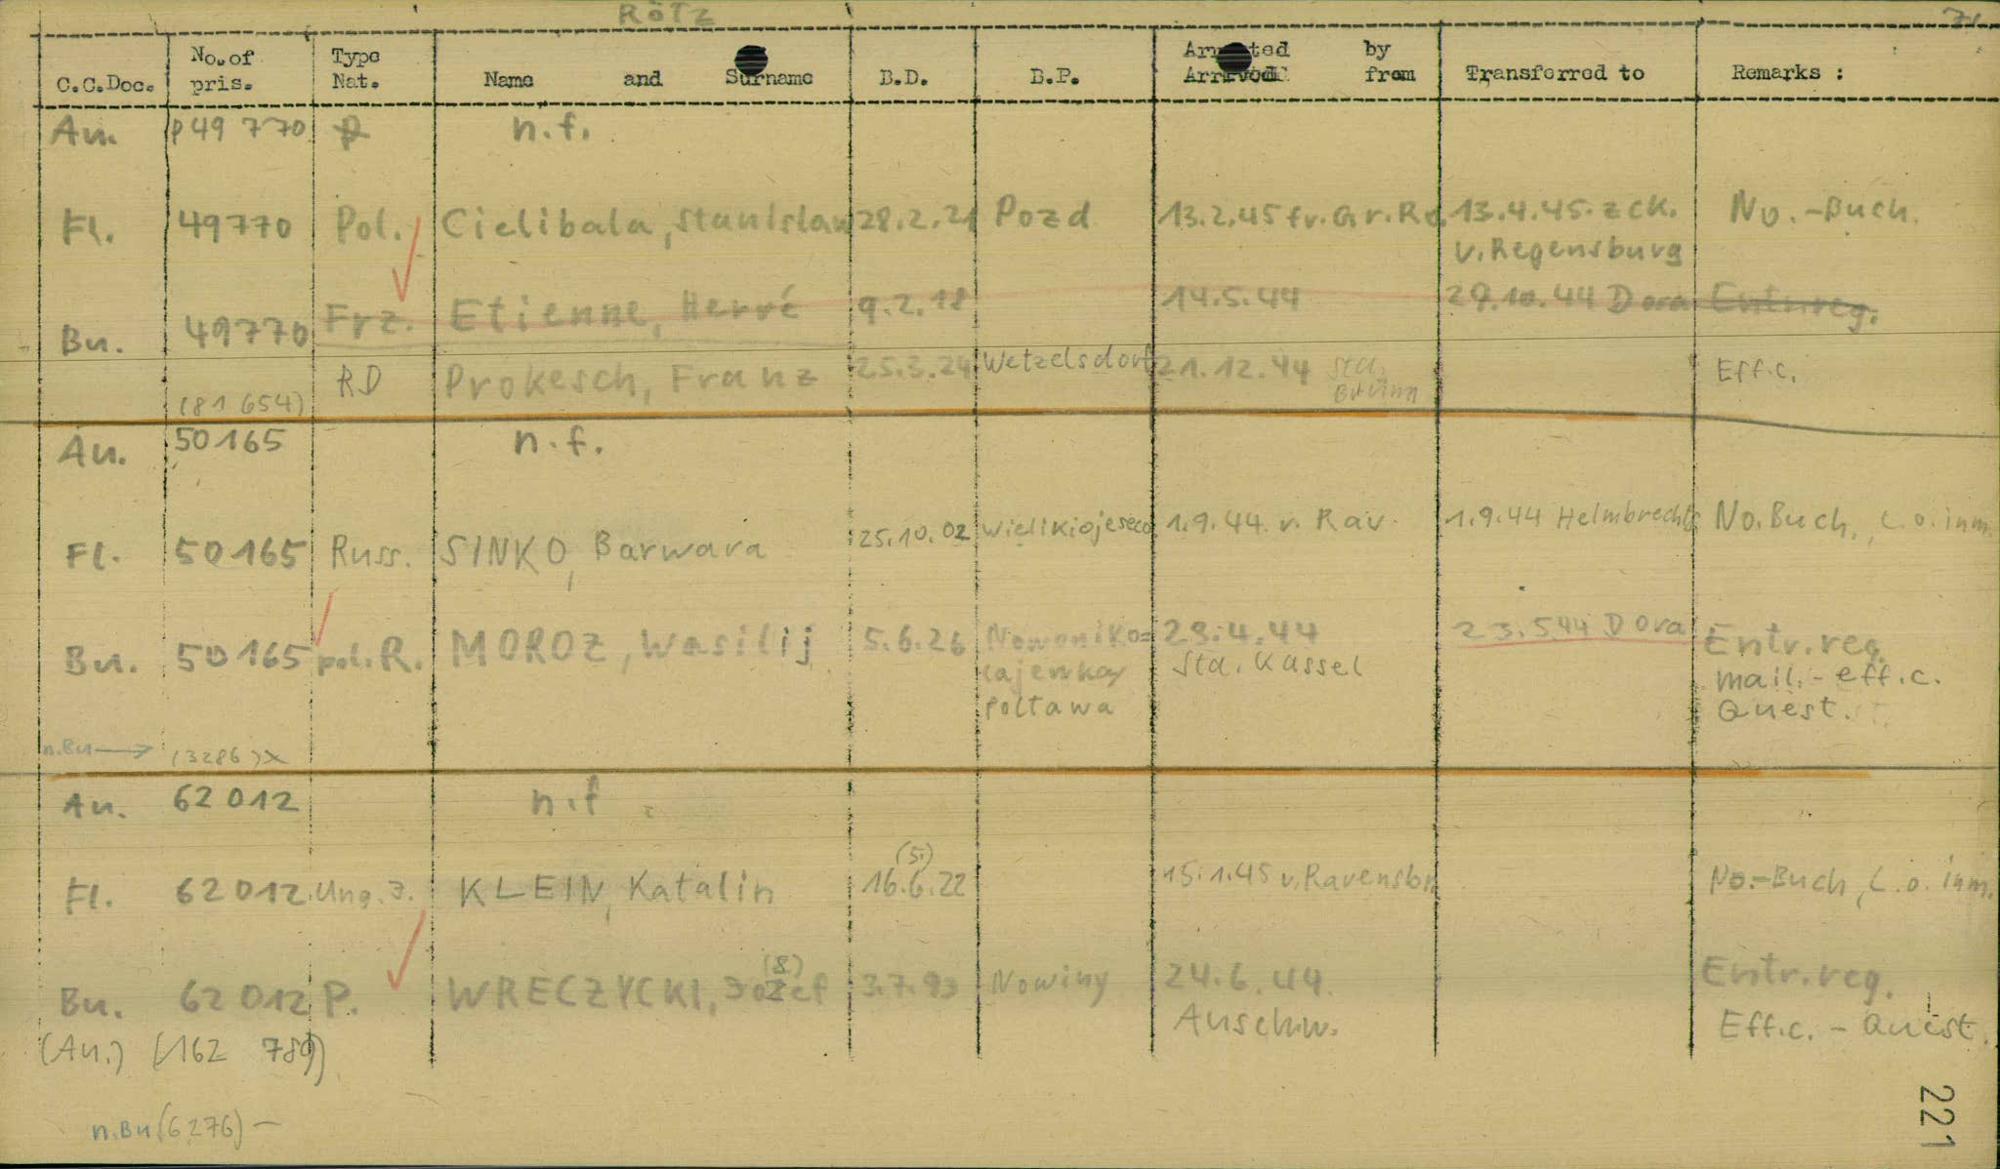 RÖTZ
71.
C.C.Doc. No. of pris. Type Nat. Name and Surname B.D. B.P. Arrested by Arrived from Transferred to Remarks :
Au. P 49 770 P n.f.
Fl. 49770 Pol. Cielibala, Stanislaw 28.2.21 Pozd 13.2.45 fr. Gr. Ro. 13.4.45. z CK. No.-Buch.
v. Regensburg
Bu. 49770 Frz. Etienne, Hervé 9.2.18 14.5.44 29.10.44 Dora Entr.reg.
(81 654) RD Prokesch, Franz 25.3.24 Wetzelsdorf 21.12.44 Sta. Brünn Eff.c.
Au. 50165 n.f.
Fl. 50165 Russ. SINKO, Barwara 25.10.02 Wielikiojeseco 1.9.44 v. Rav. 1.9.44 Helmbrechts No. Buch., L.o.inm.
Bu. 50165 pol. R. MOROZ, Wasilij 5.6.26 Nowoniko= 29.4.44 23.5.44 Dora Entr.reg.
lajewka, Sta. Kassel mail. - eff.c.
Poltawa Quest.
n.Bu → (3286) x
Au. 62012 n.f.
Fl. 62012 Ung. J. KLEIN, Katalin 16.6.22 (5.) 15.1.45 v. Ravensbr. No.-Buch, L.o. inm.
Bu. 62012 P. WRECZYCKI, Jozef (8) 3.7.93 Nowiny 24.6.44. Entr.reg.
(Au.) (162 789) Auschw. Eff.c. - Quest.
n.Bu (6276) —
221